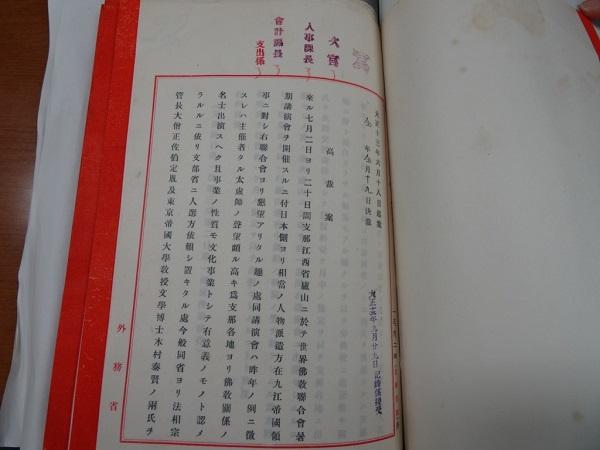 次官
人事課長
會計課長
支出係
大正十三年六月十八日起案
仝 年仝月十九日決裁
高裁案
大正十三年九月廿九日記錄係接受
來ル七月二日ヨリ二十日間支那江西省廬山ニ於テ世界佛敎聯合會暑
期講演會ヲ開催スルニ付日本側ヨリ相當ノ人物派遣方在九江帝國領
事ニ對シ右聯合會ヨリ懇望アリタル趣ノ處同講演會ハ昨年ノ例ニ徵
スレハ主催者タル太虛師ノ聲望頗ル高キ爲支那各地ヨリ佛敎關係ノ
名士出演スヘク且事業ノ性質モ文化事業トシテ有意義ノモノト認メ
ラルルニ依リ文部省ニ人選方依賴シ置キタル處今般同省ヨリ法相宗
管長大僧正佐伯定胤及東京帝國大學敎授文學博士木村泰賢ノ兩氏ヲ
外務省